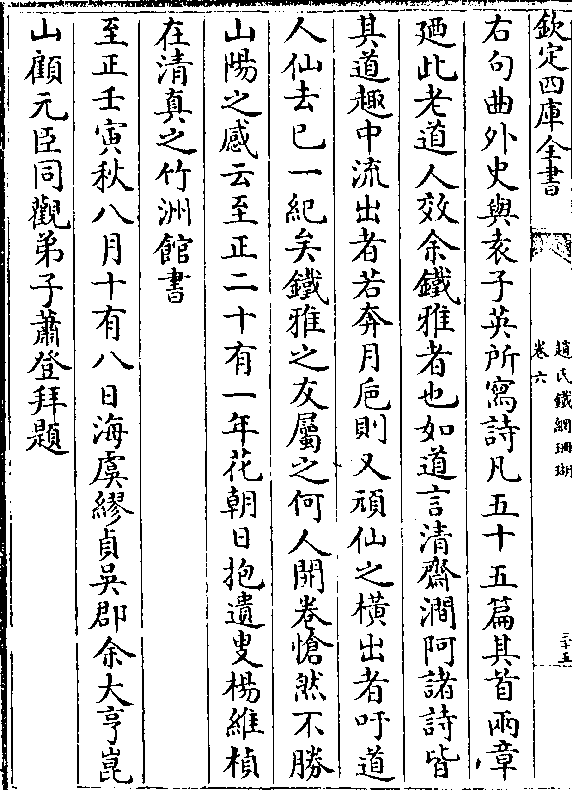 欽定四庫全書
趙氏鐵網珊瑚
卷六
三十五
右句曲外史與袁子英所寫詩凡五十五篇其首兩章
廼此老道人效余鐵雅者也如道言清齋澗阿諸詩皆
其道趣中流出者若奔月巵則又頑仙之橫出者吁道
人仙去已一紀矣鐵雅之友屬之何人開卷愴然不勝
山陽之感云至正二十有一年花朝日抱遺叟楊維楨
在清真之竹洲館書
至正壬寅秋八月十有八日海虞繆貞吳郡余大亨崑
山顧元臣同觀弟子蕭登拜題